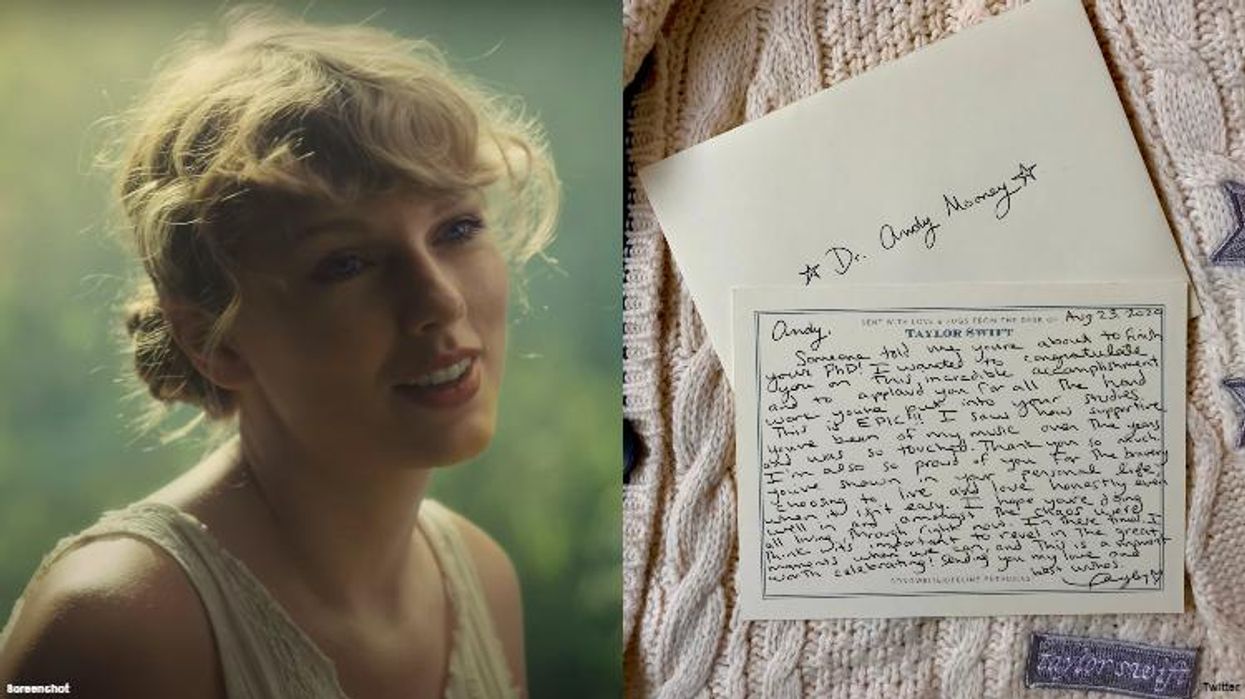 ☆ Dr. Andy Mooney ☆
SENT WITH LOVE & HUGS FROM THE DESK OF
TAYLOR SWIFT
Aug 23 2020
Andy,
Someone told my you're about to finish
your PhD! I wanted to congratulate
you on this incredible accomplishment
and to applaud you for all the hard
work you've put into your studies.
This is EPIC!!! I saw how supportive
you've been of my music over the years
and was so touched. Thank you so much.
I'm also so proud of you for the bravery
you've shown in your personal life,
choosing to live and love honestly even
when it isn't easy. I hope you're doing
well in and amongst the chaos we're
all living through right now. In these times I
think it's important to revel in the great
moments when we can, and this is a moment
worth celebrating! Sending you my love and
best wishes.
Taylor♡
taylor swift
Screenshot
Twitter